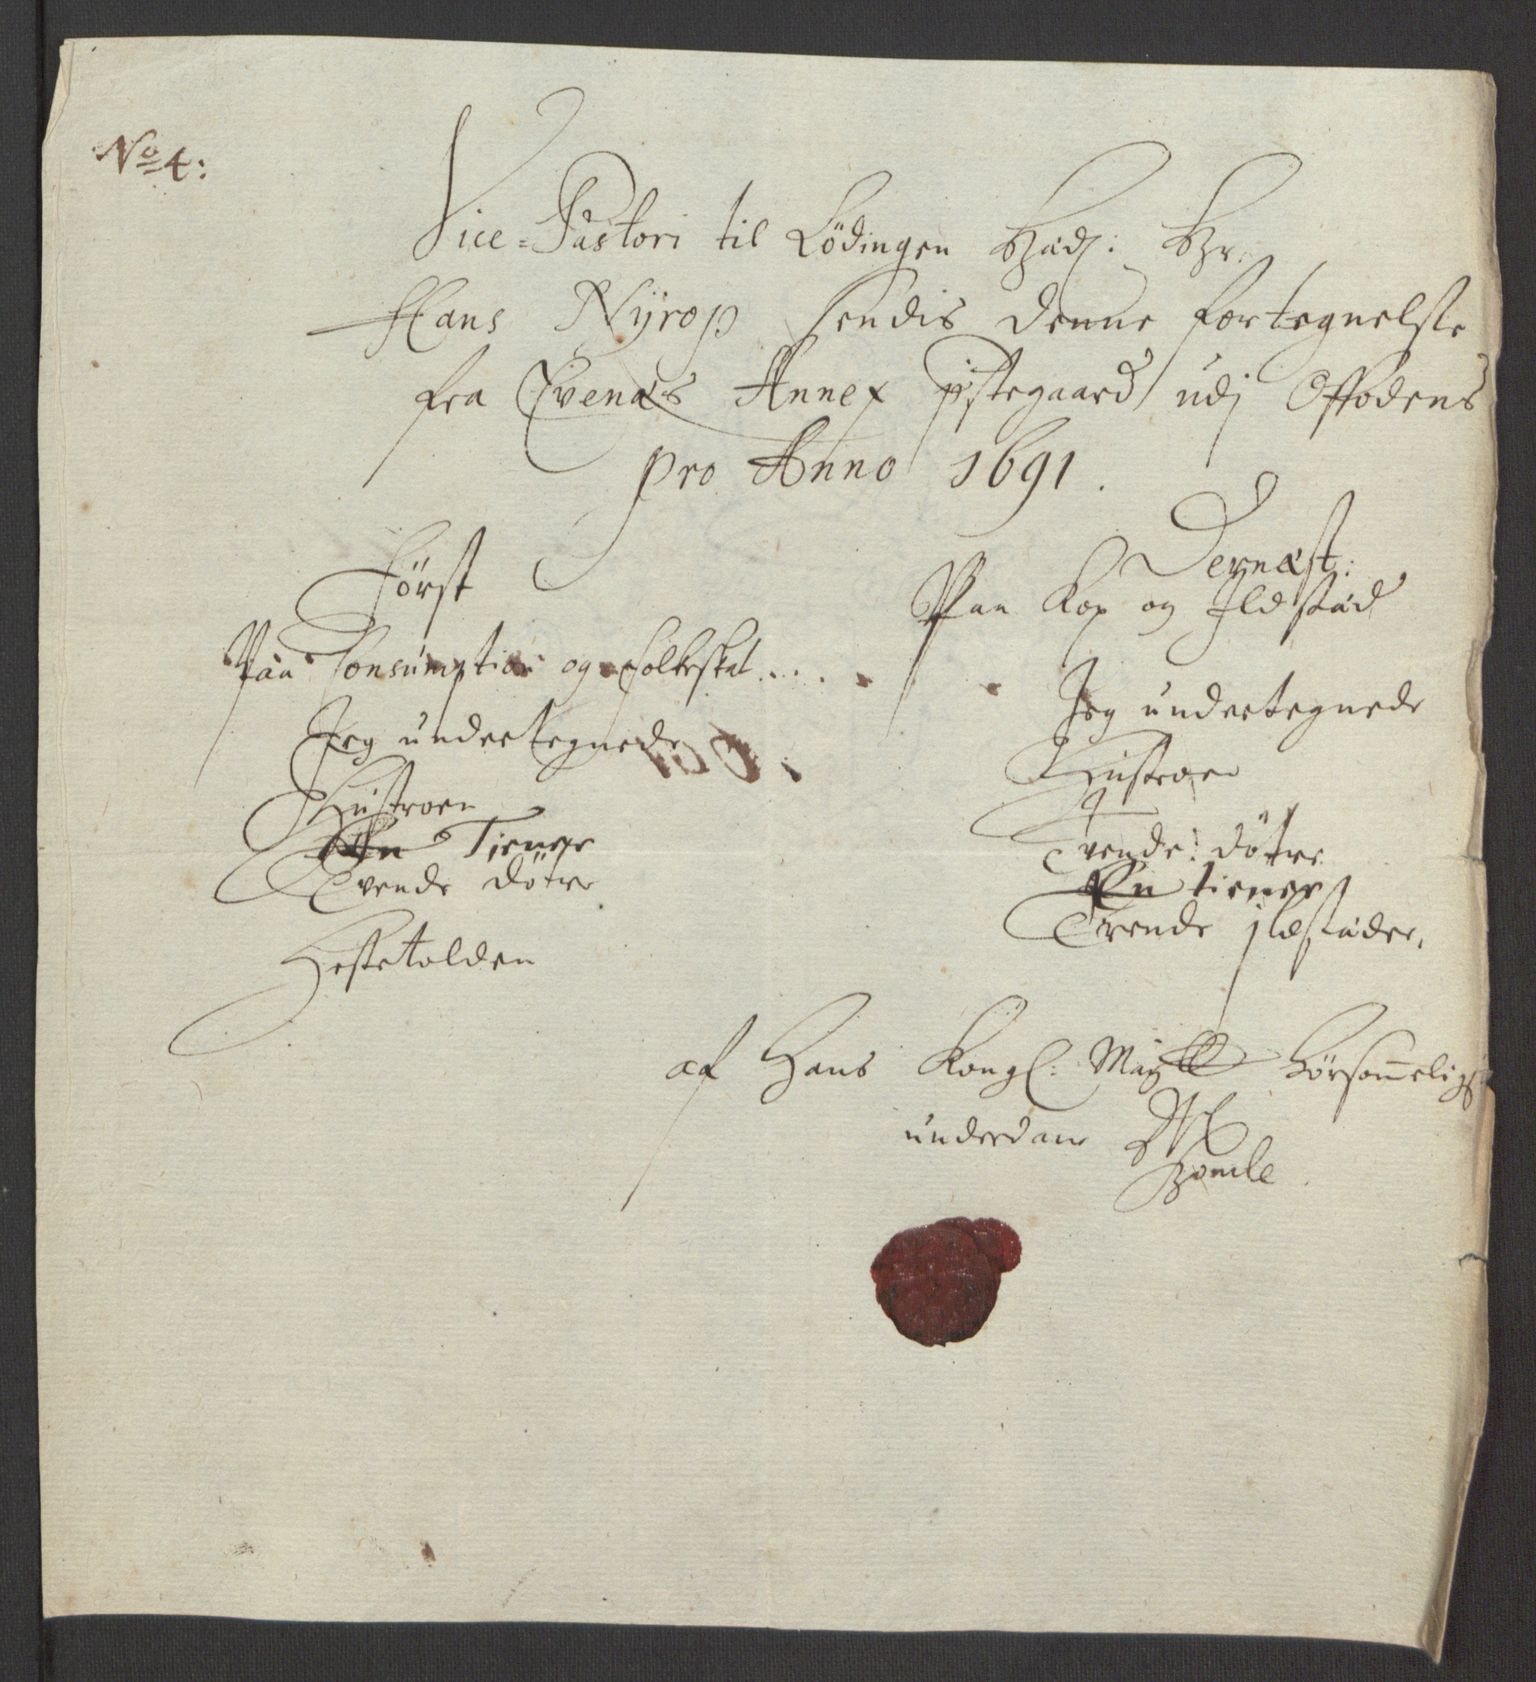 No 4:
Vice-Pastori til Lödingen Hæd: Hr.
Hans Nÿrop sendis denne fortegnelsse
fra Evenæs Annex pstegaard udj Offodens
pro Anno 1691.
Först
Paa Consumption og folkeskat....
Jeg undertegnede
Hustroen
En Tiener
Tvende döttre
Hestetolden
Dernæst:
Paa Kop og Ildstæd
Jeg undertegnede
Hustroen
Tvende döttre
En tiener
Trende ildstæder,
af Hans Kongl: Maytt Hörsom̄elig
underdane